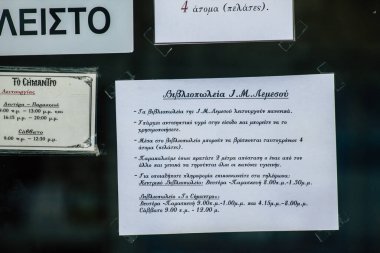 4 άτομα (πελάτες).
ΛΕΙΣΤΟ
ΤΟ ΣΗΜΑΝΤΡΟ
Λειτουργίας
Δευτέρα - Παρασκευή
9.00 - 13.00 π.μ.
16.15 - 20.00 μ.μ.
Σάββατο
9.00 - 12.30 π.μ.
Βιβλιοπωλεία Ι.Μ.Λεμεσού
- Τα Βιβλιοπωλεία της Ι.Μ.Λεμεσού λειτουργούν κανονικά.
- Υπάρχει αντισηπτικό υγρό στην είσοδο και μπορείτε να το
χρησιμοποιήσετε.
- Μέσα στο Βιβλιοπωλείο μπορούν να βρίσκονται ταυτόχρονα 4
άτομα (πελάτες).
- Παρακαλούμε όπως κρατάτε 2 μέτρα απόσταση ο ένας από τον
άλλο και γενικά να τηρούνται όλοι οι κανόνες υγιεινής.
- Για οποιαδήποτε πληροφορία επικοινωνείτε στα τηλέφωνα:
Κεντρικό Βιβλιοπωλείο: Δευτέρα -Παρασκευή 8.00π.μ.-1.30μ.μ.
Βιβλιοπωλείο «Το Σήμαντρο»:
Δευτέρα -Παρασκευή 9.00π.μ.-1.00μ.μ. και 4.15μ.μ.-8.00μ.μ.
Σάββατο 9.00 π.μ. - 12.00 μ.